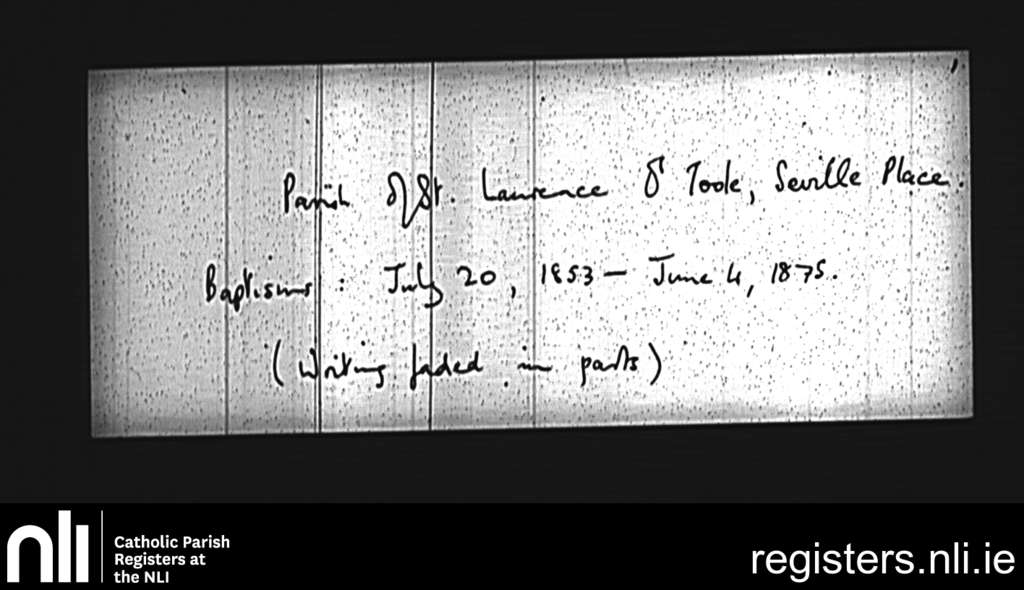 Parish of St. Laurence O'Toole, Seville Place.
Baptisms : July 20, 1853 – June 4, 1875.
(Writing faded in parts)
nli
Catholic Parish
Registers at
the NLI
registers.nli.ie